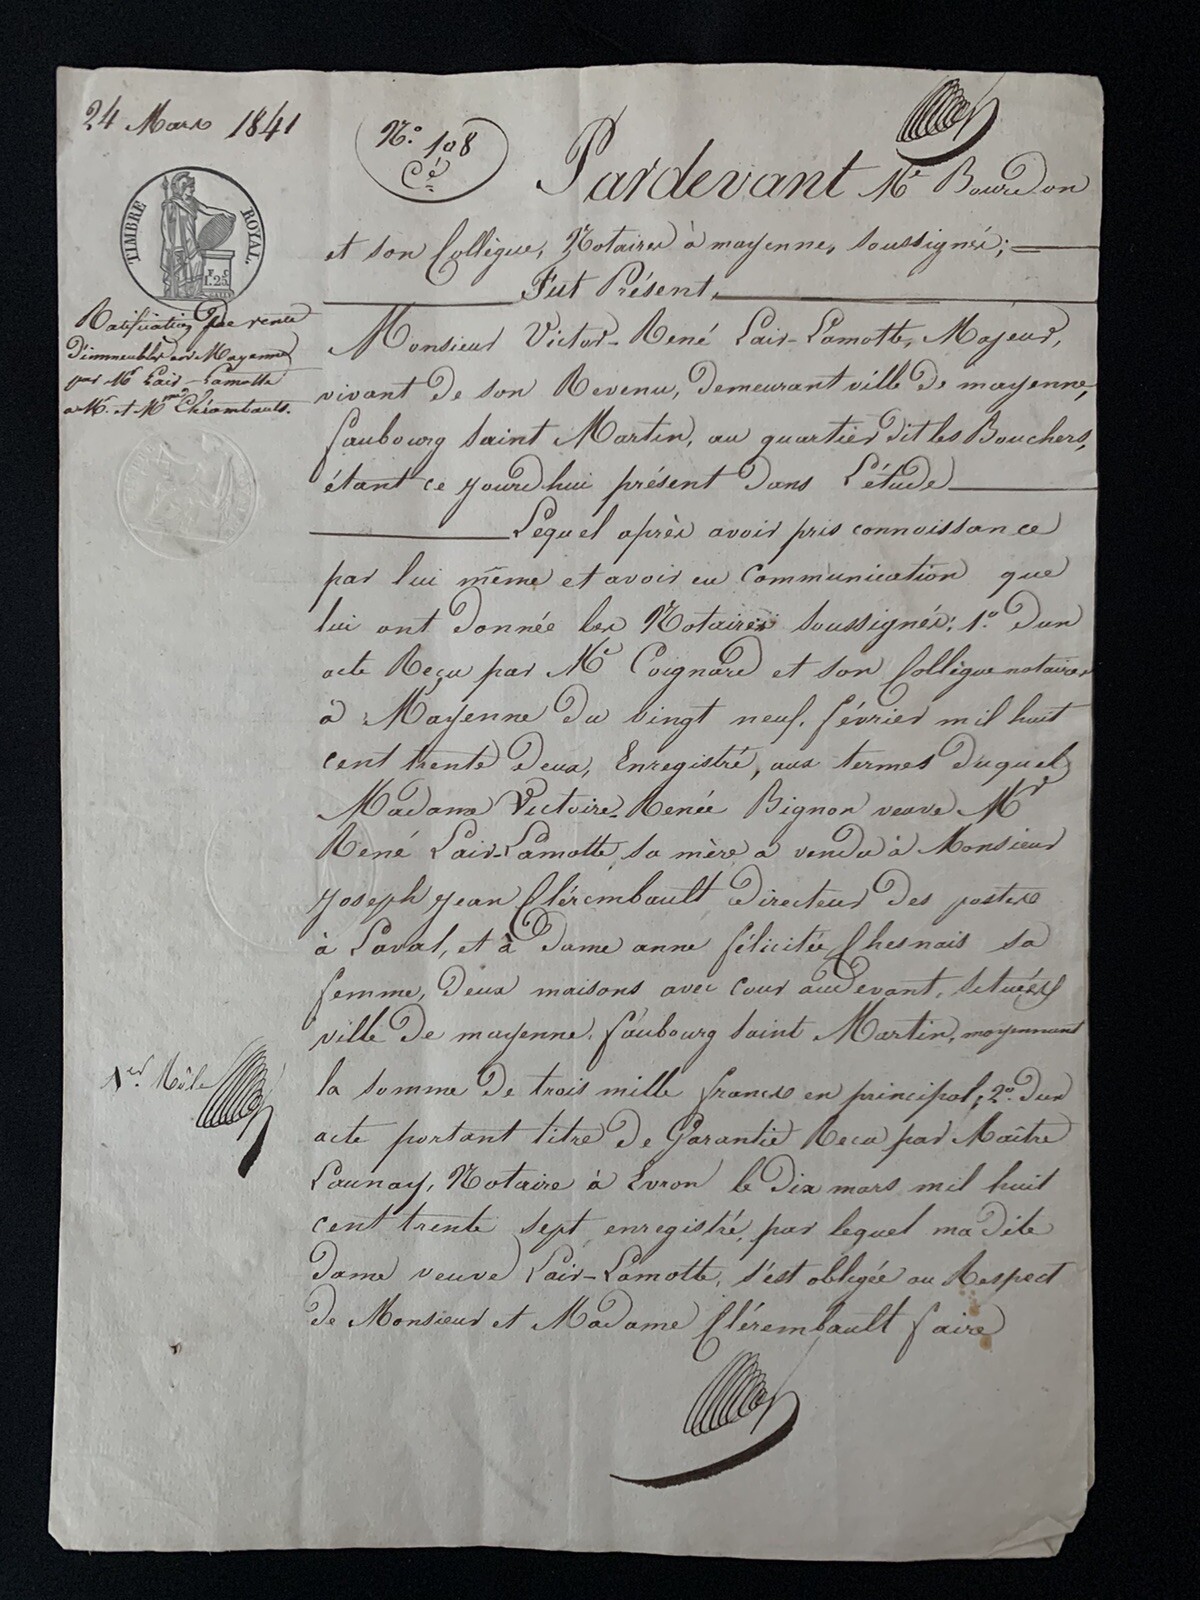 24 Mars 1841
N.º 108
Cé
TIMBRE ROYAL
1F. 25C
Pardevant Me Bourdon
et son Collègue, Notaires à mayenne, soussignés;
Fut Présent,
Ratification de vente
d'immeubles en Mayenne
par Mr Lair-Lamotte
a Mr. et Mme Clérambault.
Monsieur Victor-René Lair-Lamotte, Majeur,
vivant de son Revenu, demeurant ville de mayenne,
faubourg saint Martin, au quartier dit les Bouchers,
étant ce jourd'hui présent dans L'étude
Lequel après avoir pris connaissance
par lui même et avoir eu communication que
lui ont donnée les Notaires soussignés: 1.º d'un
acte Reçu par Me Coignard et son Collègue notaires
à Mayenne du vingt neuf février mil huit
cent trente deux, Enregistré, aux termes duquel
Madame Victoire-Renée Bignon veuve Mr
René Lair-Lamotte, sa mère a vendu à Monsieur
Joseph Jean Clérembault directeur des postes
à Laval, et à Dame anne félicitée Chesnais sa
femme, deux maisons avec cour audevant, situées
ville de mayenne, faubourg saint Martin, moyennant
1er Rôle
la somme de trois mille francs en principal; 2.º d'un
acte portant titre de Garantie Recu par Maître
Launay, Notaire à Evron le dix mars mil huit
cent trente sept enregistré, par lequel madite
dame veuve Lair-Lamotte, s'est obligée au Respect
de Monsieur et Madame Clérembault faire